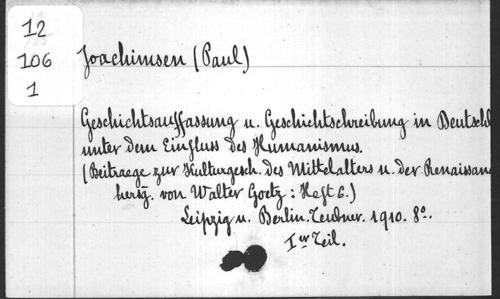 12
106
1
Joachimsen (Paul)
Geschichtsauffassung u. Geschichtschreibung in Deutschl
unter dem Einfluss des Humanismus.
(Beitraege zur Kulturgesch. des Mittelalters u. der Renaissan
hersg. von Walter Goetz: Heft 6.)
Leipzig u. Berlin. Teubner. 1910. 8°.
Ier Teil.